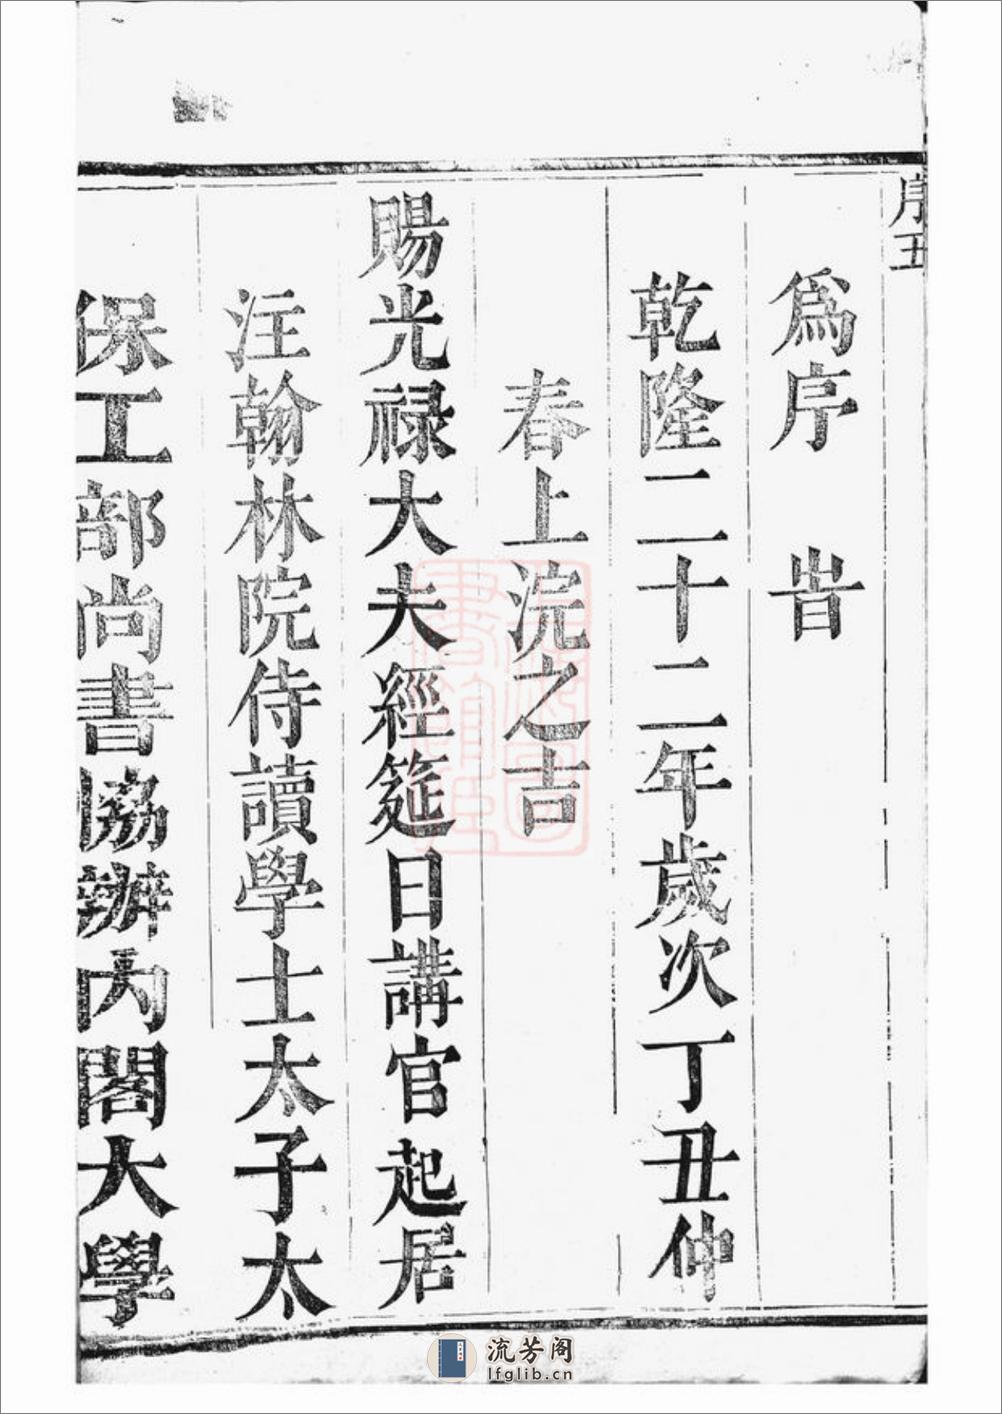 序五
為序 旹
乾隆二十二年歲次丁丑仲
春上浣之吉
賜光禄大夫經筵日講官起居
注翰林院侍讀學士太子太
保工部尚書協辦內閣大學
流芳阁
lfglib.cn